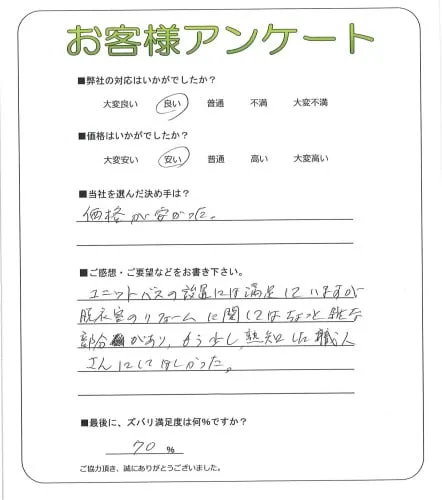 お客様アンケート
■弊社の対応はいかがでしたか?
大変良い 良い 普通 不満 大変不満
■価格はいかがでしたか?
大変安い 安い 普通 高い 大変高い
■当社を選んだ決め手は?
価格が安かった。
■ご感想・ご要望などをお書き下さい。
ユニットバスの設置には満足していますが
脱衣室のリフォームに関してはちょっと雑な
部分があり、もう少し熟知した職人
さんにしてほしかった。
■最後に、ズバリ満足度は何%ですか?
70 %
ご協力頂き、誠にありがとうございました。